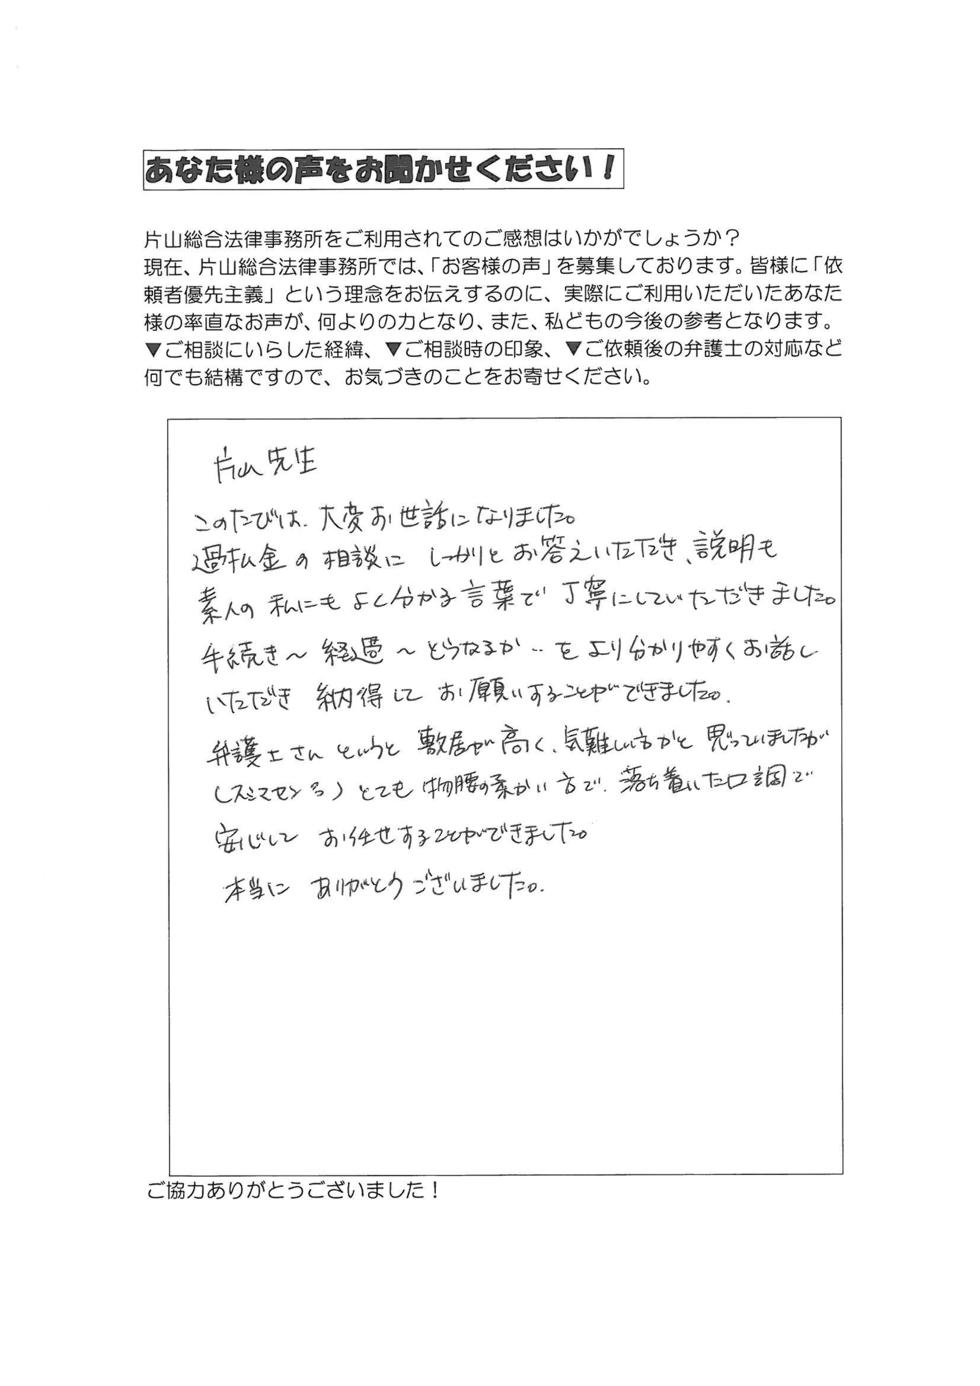 あなた様の声をお聞かせください！
片山総合法律事務所をご利用されてのご感想はいかがでしょうか？
現在、片山総合法律事務所では、「お客様の声」を募集しております。皆様に「依
頼者優先主義」という理念をお伝えするのに、実際にご利用いただいたあなた
様の率直なお声が、何よりの力となり、また、私どもの今後の参考となります。
▼ご相談にいらした経緯、▼ご相談時の印象、▼ご依頼後の弁護士の対応など
何でも結構ですので、お気づきのことをお寄せください。
片山先生
このたびは、大変お世話になりました。
過払金の相談に しっかりとお答えいただき、説明も
素人の私にもよく分かる言葉で丁寧にしていただきました。
手続き〜経過〜どうなるか‥をより分かりやすくお話し
いただき 納得して お願いすることができました。
弁護士さんというと敷居が高く、気難しい方かと思っていましたが
(スミマセン) とても物腰の柔かい方で、落ち着いた口調で
安心して お任せすることができました。
本当に ありがとうございました。
ご協力ありがとうございました！